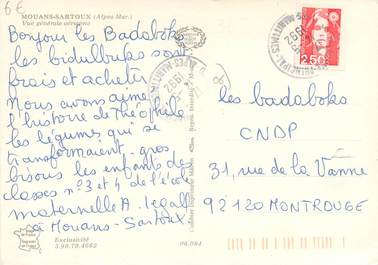 6€
MOUANS-SARTOUX (Alpes-Mar.)
Vue générale aérienne
Bonjour les Badaboks
les bidulbuks sont
frais et achetés
Nous avons aimé
l'histoire de Théophile
les légumes qui se
transformaient. gros
bisous les enfants de
classes n°3 et 4 de l'école
maternelle A. Legall
à Mouans-Sartoux
Exclusivité
3.90.79.4662
06.084
1992
2,50
les badaboks
CNDP
31, rue de la Vanne
92120 MONTROUGE